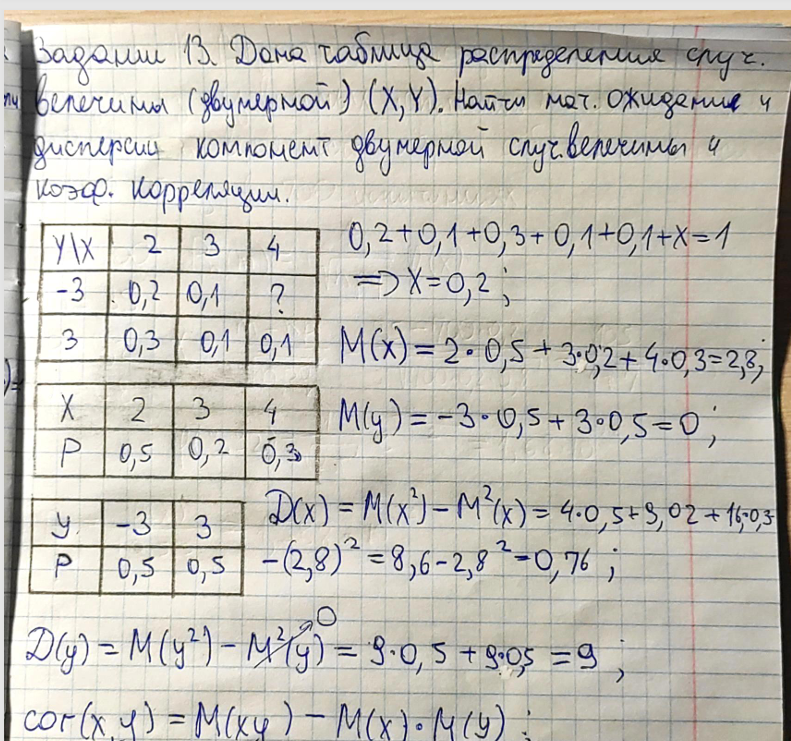 Задание 13. Дана таблица распределения случ.
величины (двумерной) (X,Y). Найти мат. ожидание и
дисперсии компонент двумерной случ.величины и
коэф. корреляции.
Y\X 2 3 4
-3 0,2 0,1 ?
3 0,3 0,1 0,1
0,2+0,1+0,3+0,1+0,1+x=1
=> X=0,2;
M(x)=2·0,5+3·0,2+4·0,3=2,8;
X 2 3 4
P 0,5 0,2 0,3
M(y)=-3·0,5+3·0,5=0;
y -3 3
P 0,5 0,5
D(x)=M(x²)-M²(x)=4·0,5+9,02+16·0,3
-(2,8)²=8,6-2,8²=0,76;
D(y)=M(y²)-M²(y)=9·0,5+9·0,5=9;
0
cor(x,y)=M(xy)-M(x)·M(y);